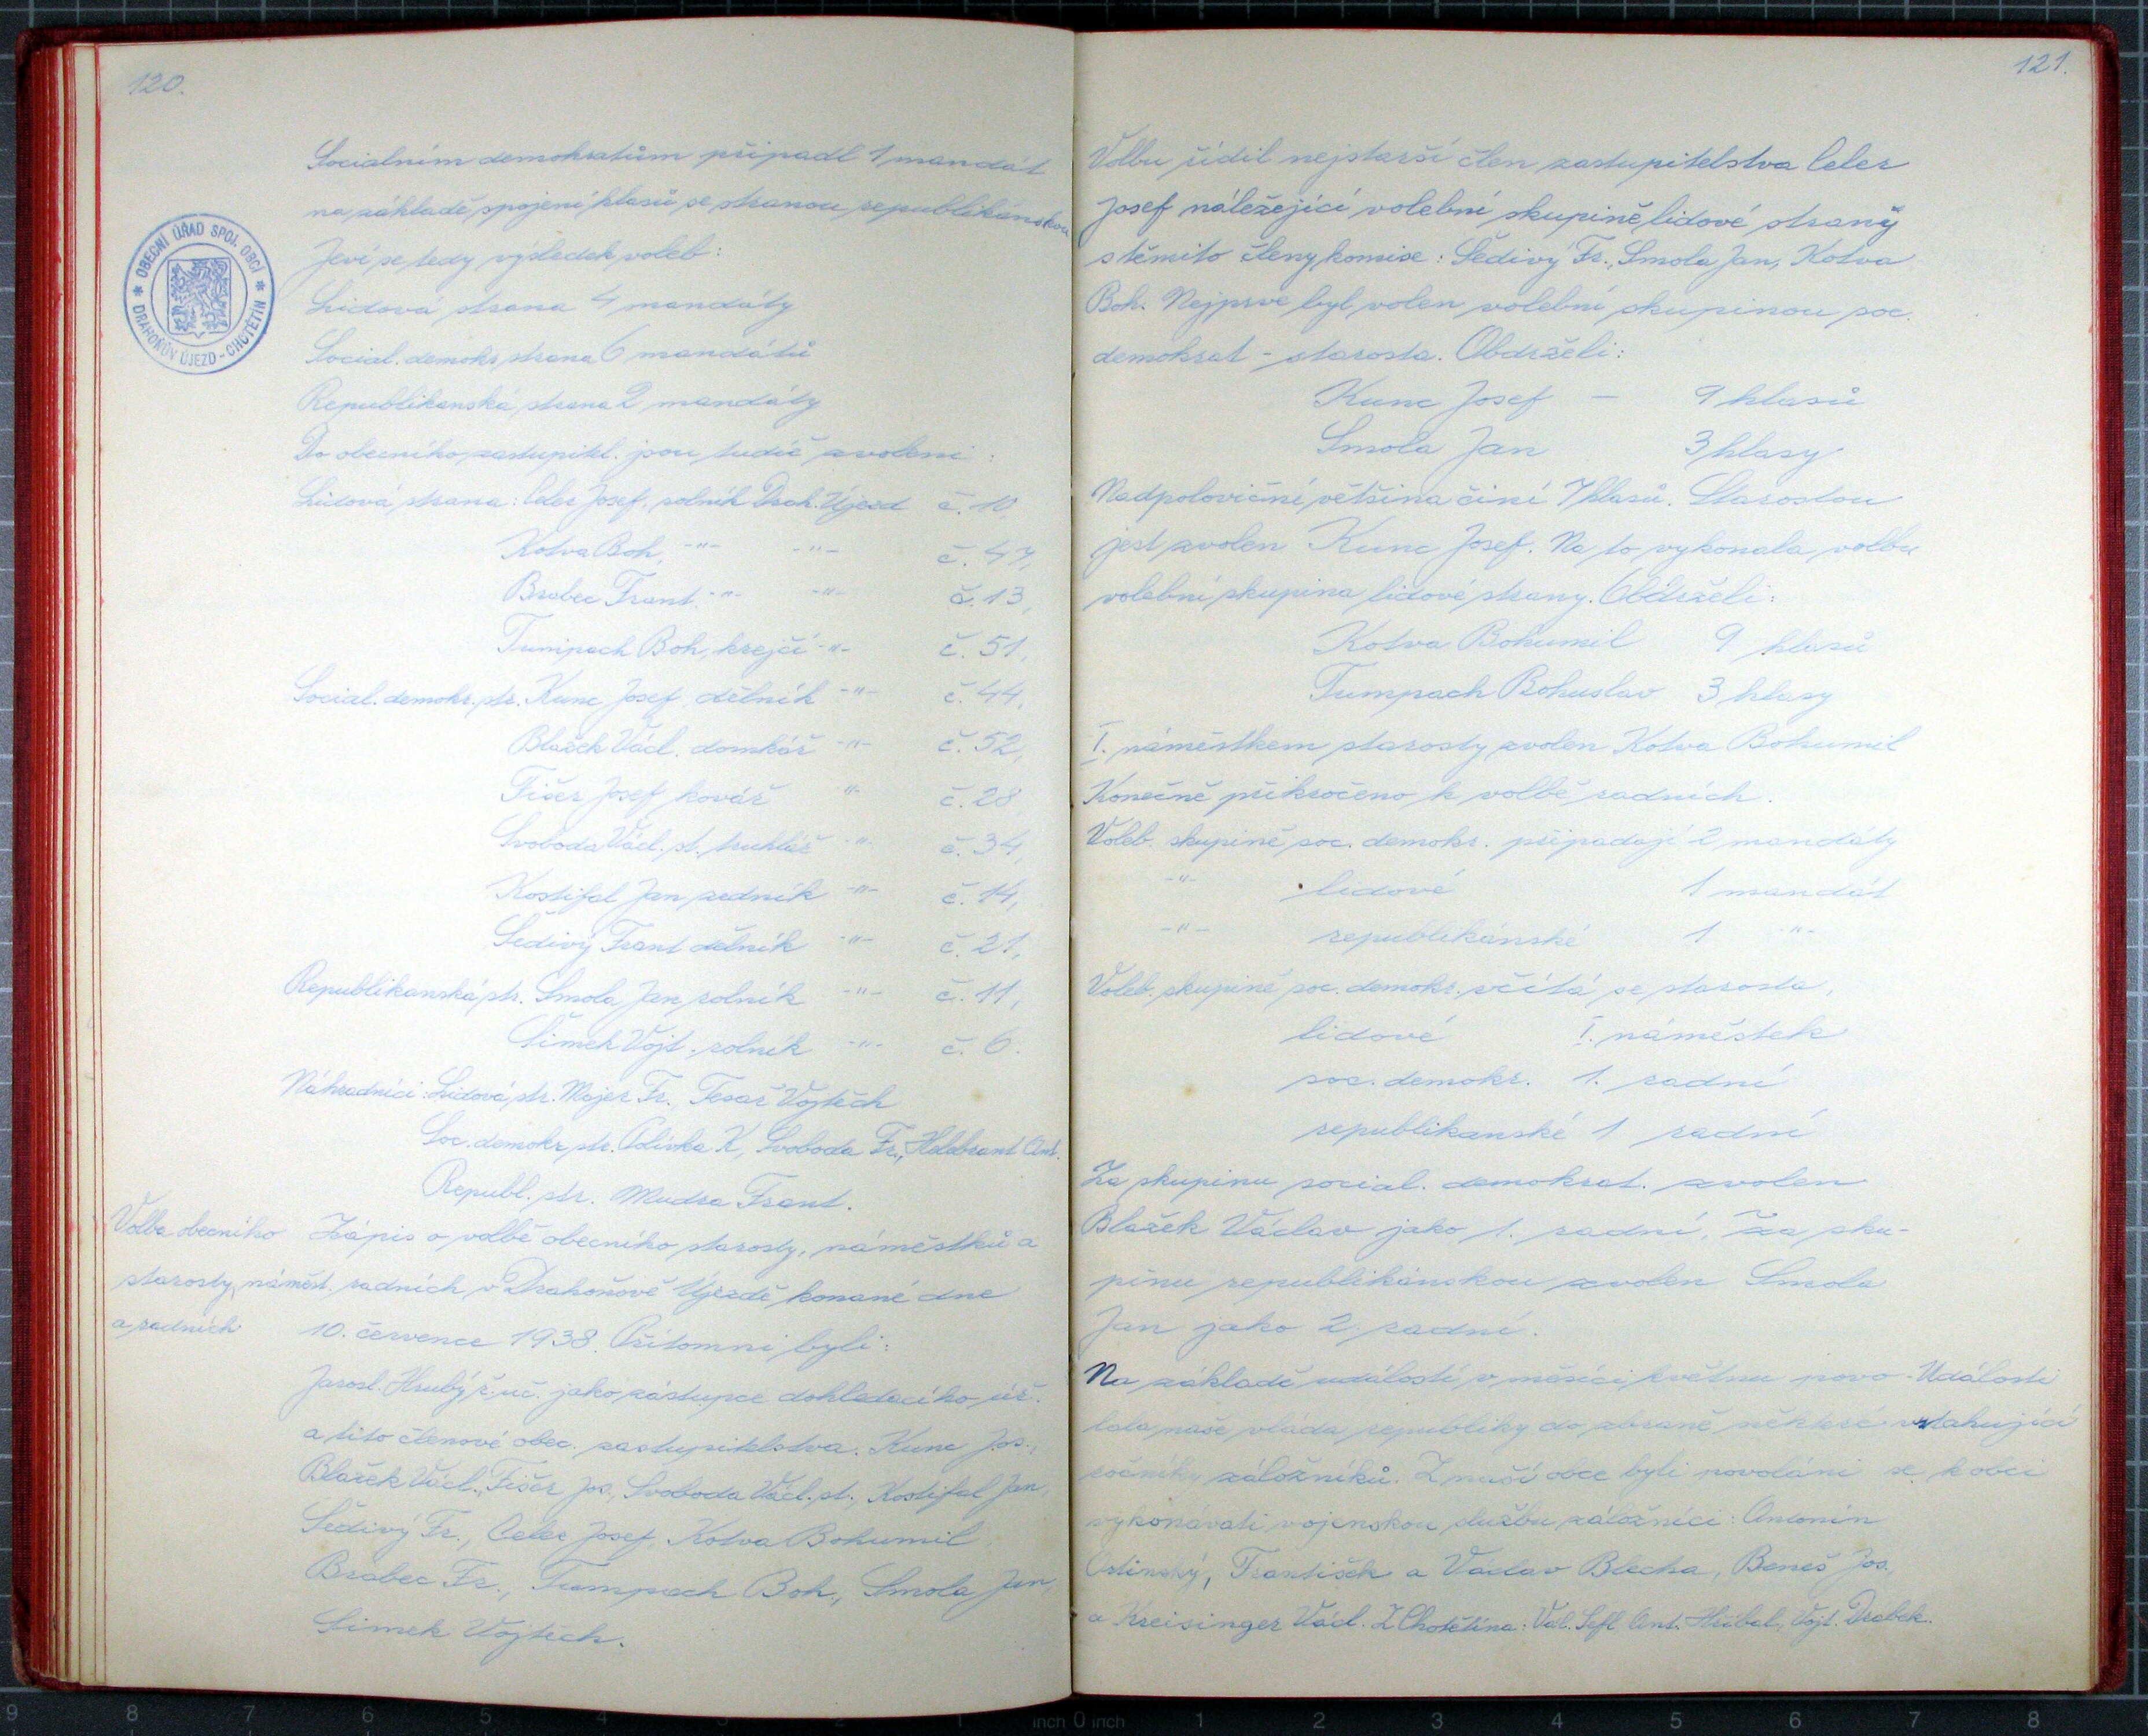 120.
Socialním demokratům připadl 1 mandát
na základě spojení hlasů se stranou republikánskou
Jeví se tedy výsledek voleb:
Lidová strana 4 mandáty
Social. demokr. strana 6 mandátů
Republikanská strana 2 mandáty
Do obecního zastupitel. jsou tudíž zvoleni:
Lidová strana: Celer Josef, rolník Drah. Újezd č. 10,
Kotva Boh. -"- -"- č. 47,
Brabec Frant. -"- -"- č. 13,
Tumpach Boh, krejčí -"- č. 51,
Social. demokr. str. Kunc Josef dělník -"- č. 44,
Blažek Václ. domkář -"- č. 52,
Fišer Josef kovář -"- č. 28,
Svoboda Václ. st. truhlář -"- č. 34,
Kostifal Jan zedník -"- č. 14,
Šedivý Frant dělník -"- č. 21,
Republikanská str. Smola Jan rolník -"- č. 11,
Šimek Vojt. rolník -"- č. 6.
Náhradníci: Lidová str. Majer Fr., Tesař Vojtěch
Soc. demokr. str. Polívka K, Svoboda Fr., Hildebrant Ant.
Republ. str. Mudra Frant.
Volba obecního
starosty, náměst.
a radních
Zápis o volbě obecního starosty, náměstků a
radních v Drahoňově Újezdě konané dne
10. července 1938. Přítomni byli:
Jarosl. Hrubý ř. uč. jako zástupce dohledacího úř.
a tito členové obec. zastupitelstva. Kunc Jos.,
Blažek Václ., Fišer Jos., Svoboda Václ. st., Kostifal Jan,
Šedivý Fr., Celer Josef, Kotva Bohumil
Brabec Fr., Tumpach Boh., Smola Jan,
Šimek Vojtěch.
OBECNÍ ÚŘAD SPOJ. OBCÍ
DRAHOŇŮV ÚJEZD - CHOTĚTÍN
121.
Volbu řídil nejstarší člen zastupitelstva Celer
Josef náležející volební skupině lidové strany
s těmito členy komise: Šedivý Fr., Smola Jan, Kotva
Boh. Nejprve byl volen volební skupinou soc.
demokrat - starosta. Obdrželi:
Kunc Josef - 9 hlasů
Smola Jan 3 hlasy
Nadpoloviční většina činí 7 hlasů. Starostou
jest zvolen Kunc Josef. Na to vykonala volbu
volební skupina lidové strany. Obdrželi:
Kotva Bohumil 9 hlasů
Tumpach Bohuslav 3 hlasy
I. náměstkem starosty zvolen Kotva Bohumil
Konečně přikročeno k volbě radních.
Voleb. skupině soc. demokr. připadají 2 mandáty
-"- lidové 1 mandát
-"- republikánské 1 -"-
Voleb. skupině soc. demokr. včítá se starosta,
lidové I. náměstek
soc. demokr. 1. radní
republikanské 1 radní
Za skupinu social. demokrat. zvolen
Blažek Václav jako 1. radní, za sku-
pinu republikánskou zvolen Smola
Jan jako 2. radní.
Na základě událostí v měsíci květnu povo-
lala naše vláda republiky do zbraně některé
ročníky záložníků. Z naší obce byli povoláni
vykonávati vojenskou službu záložníci: Antonín
František a Václav Blecha, Beneš Jos.
a Kreisinger Václ. Z Chotětína: Vál. Šefl Ant. Hříbal, Vojt. Drábek.
Události
vztahující
se k obci